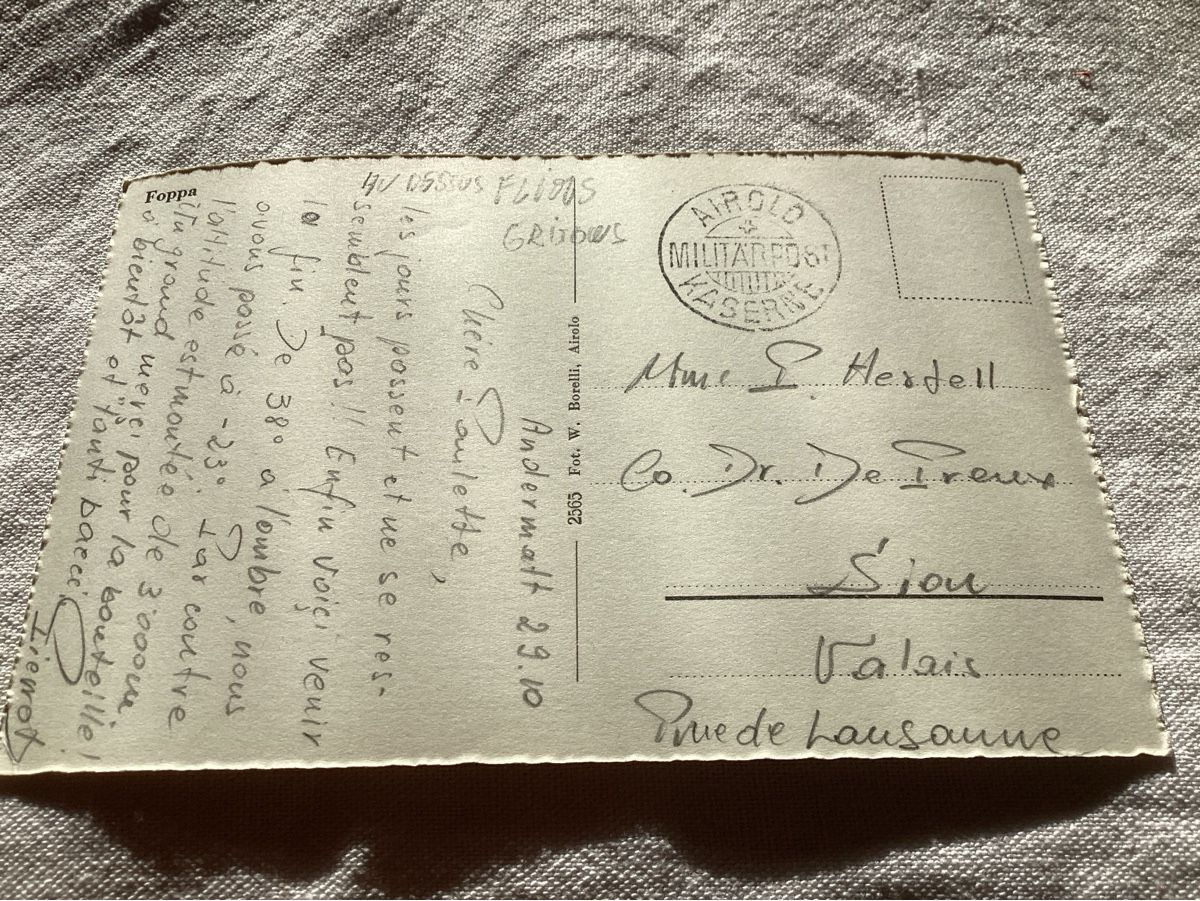 Foppa
AU DESSUS FLIMS
GRISONS
Andermatt 29.10
Chère Paulette,
les jours passent et ne se res-
semblent pas!! Enfin voiçi venir
la fin. De 38° à l'ombre, nous
avons passé à -23°. Par contre
l'altitude est montée de 3'000m.
Un grand merci pour la bouteille!
à bientôt et "tanti bacci"
2565 Fot. W. Borelli, Airolo
AIROLO
MILITÄRPOST
KASERNE
Mme E. Hertell
Co. Dr. De Preux
Sion
Valais
Rue de Lausanne